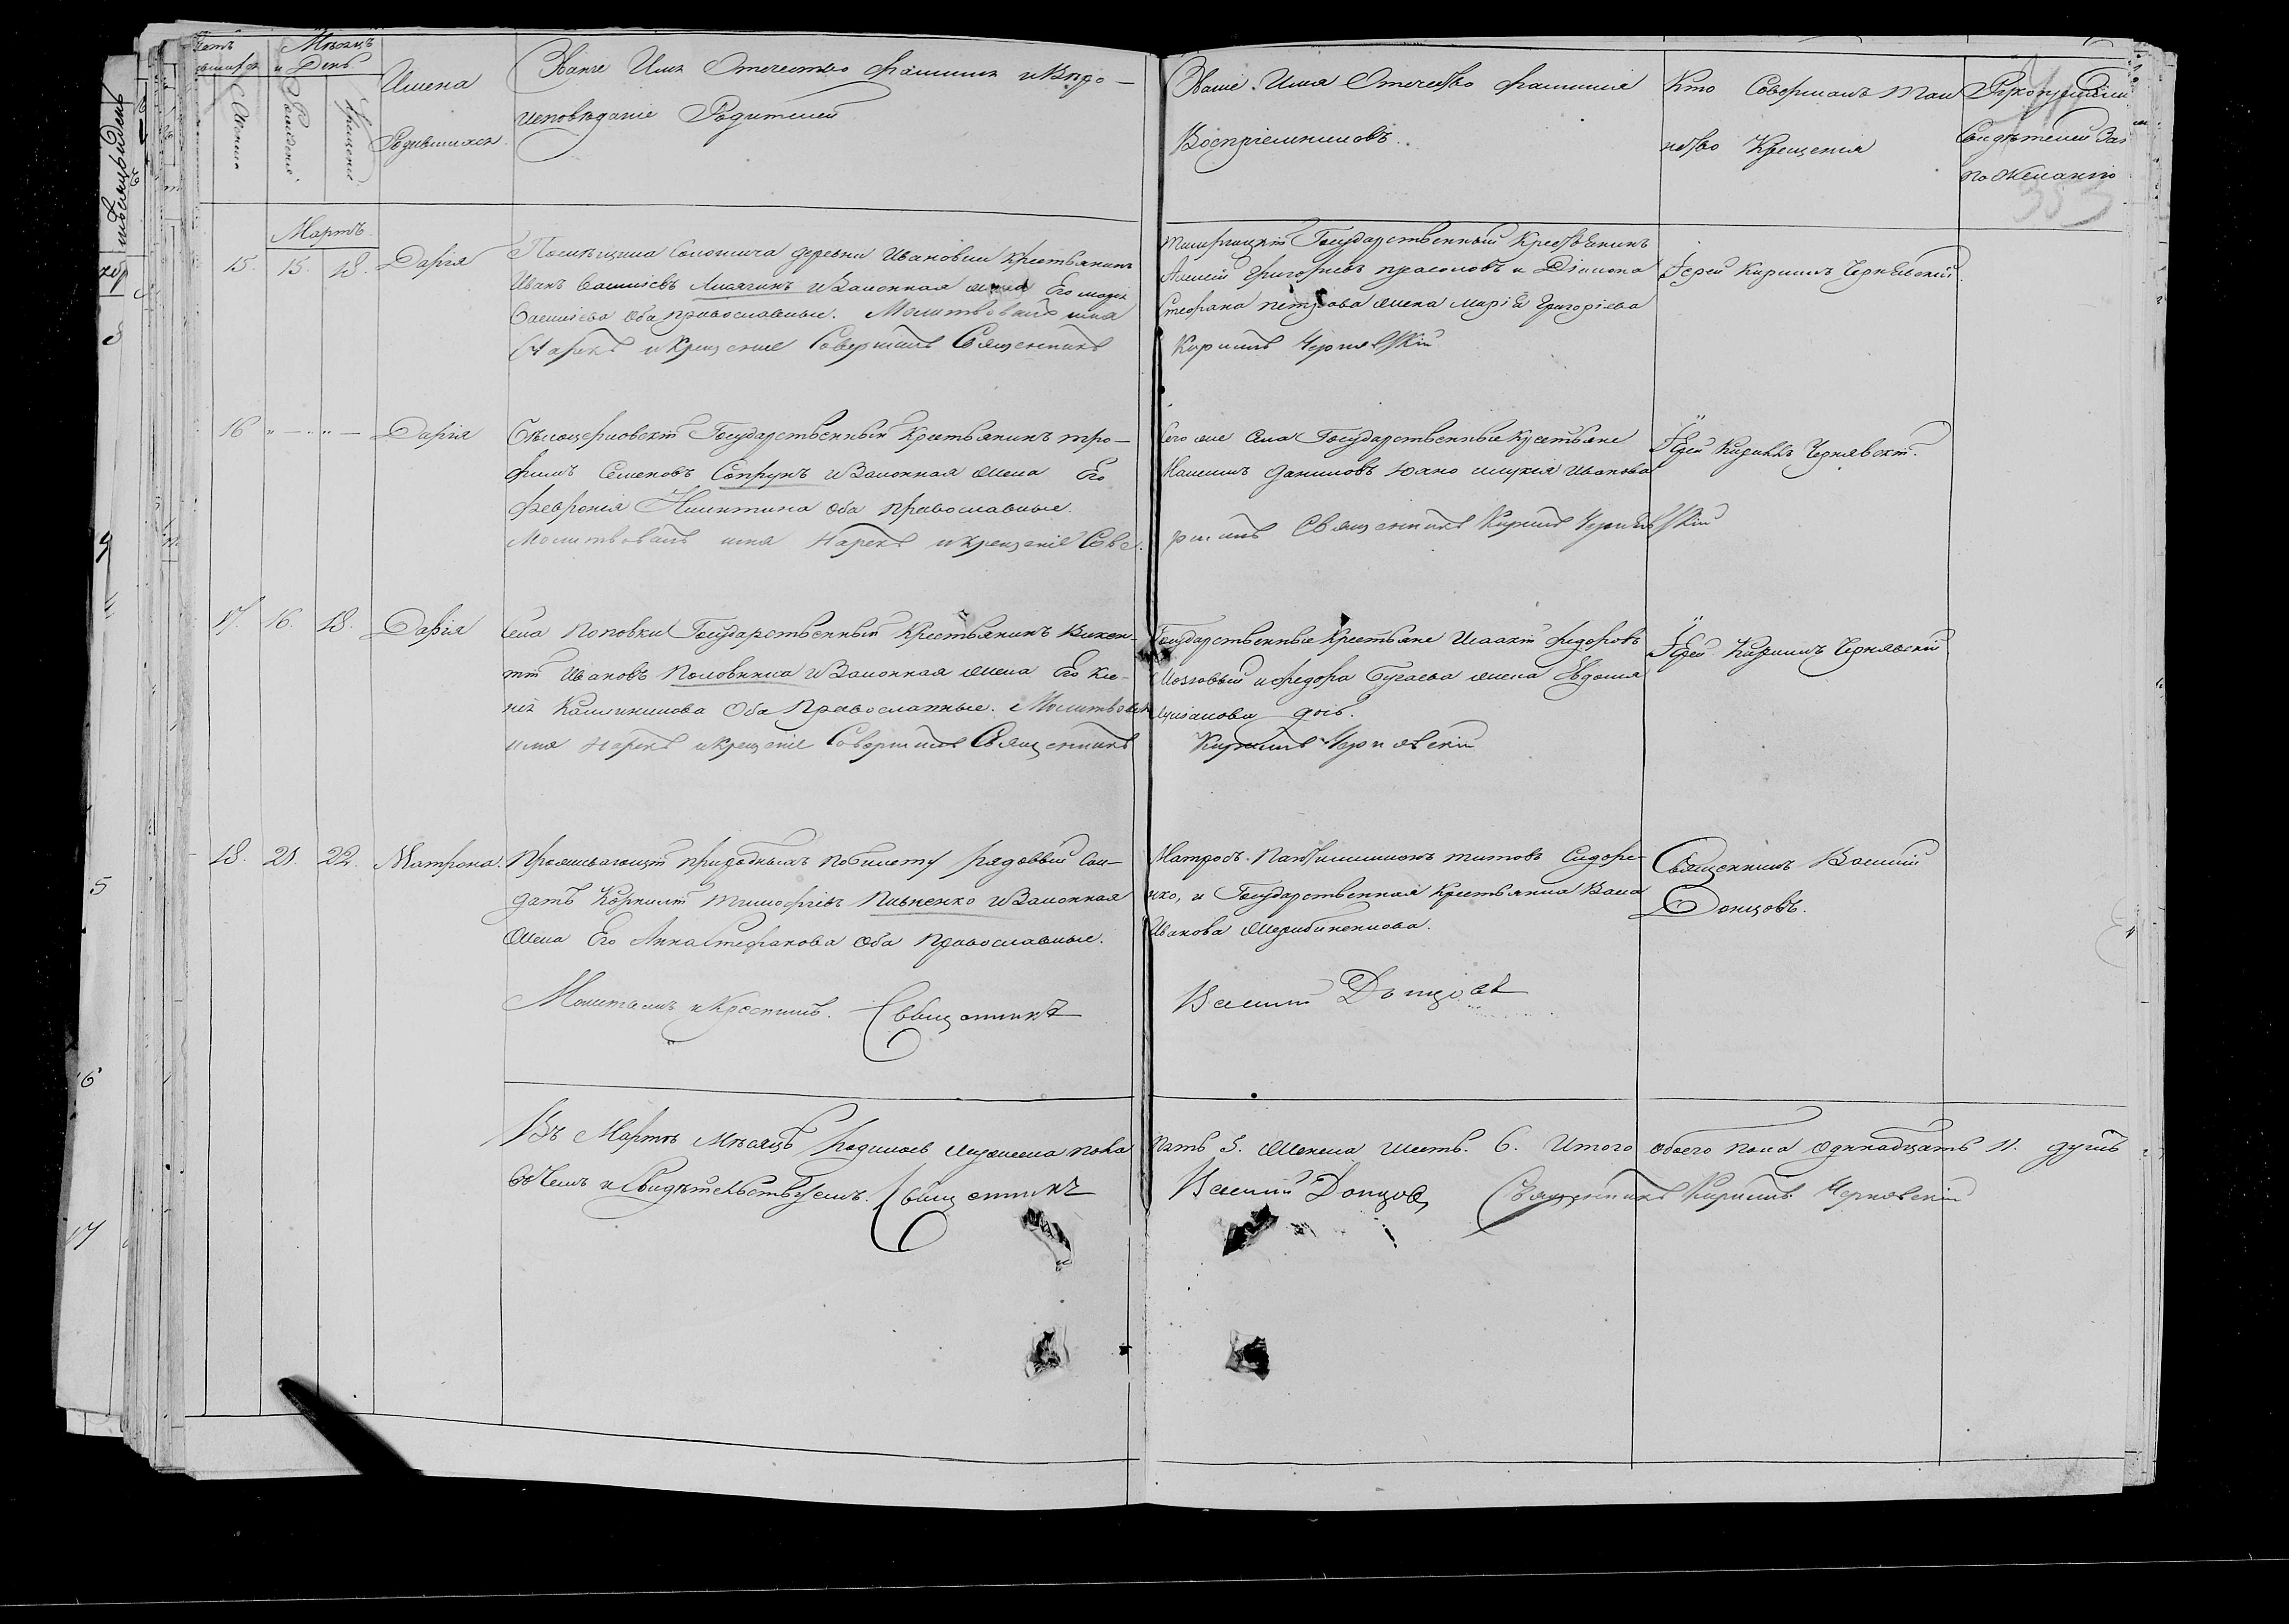 Мѣсяцъ
и День
Женска
Рожденія.
Крещенія
Имена
Родившихся.
Званіе Имя Отечество фамилия и Вѣро-
исповѣданіе Родителей
Званіе Имя Отечество фамилия
Воспріемниковъ.
Кто Совершалъ Таин
ство Крещенія
Рукоприкл
Свидѣтелей Зап
по Желанію
Мартъ
15. 15. 18. Дарія
Помѣщика деревни Ивановки Крестьянинъ
Иванъ Васильевъ Лисягинъ и Законная жена Его
Васильева Оба православные. Молитвовалъ имя
Нарекъ и Крещеніе Совершилъ Священникъ
Государственный Крестьянинъ
Алексій Григорьевъ и Діакона
Стефана Петрова жена Марія Григоріева
Кирилъ Чернявскій
Іерей Кирилъ Чернявскій.
16 " — " — Дарія
Государственный Крестьянинъ Тро-
фимъ Семеновъ Сопрунъ и Законная жена Его
Февронія Никитина Оба Православные.
Молитвовалъ имя Нарекъ и крещеніе Сове
Сего же села Государственные Крестьяне
Даниловъ Иванова
ршилъ Священникъ Кирилъ Чернявскій
Іерей Кирилъ Чернявскій.
17. 16. 18. Дарія
села Поповки Государственный Крестьянинъ Викен-
тій Ивановъ Половинка и Законная жена Его Ксе-
нія Калиникова Оба Православные. Молитвовалъ
имя Нарекъ и крещеніе Совершилъ Священникъ
Государственные Крестьяне Исаакій Федоровъ
Мозговый и Федора Бугаева жена Евдокія
Лукіанова дочь.
Кирилъ Чернявскій
Іерей Кирилъ Чернявскій
18. 21. 22. Матрона.
Проживающій при родныхъ по билету рядовый Сол-
датъ Корнилій Тимофѣевъ Павленко и Законная
Жена Его Анна Стефанова Оба Православные.
Молитвилъ и Крестилъ. Священникъ
Матросъ Пантилимонъ Титовъ Сидоре-
нко, и Государственная Крестьянка Васса
Иванова Жеребиненкова.
Василій Донцовъ
Священникъ Василій
Донцовъ.
Въ Мартѣ Мѣсяцѣ Родилось Мужеска пола
Пять 5. Женска шесть. 6. Итого обоего пола Одинадцать 11. душъ
въ чемъ и Свидѣтельствуемъ. Священникъ
Василій Донцовъ Священникъ Кирилъ Чернявскій